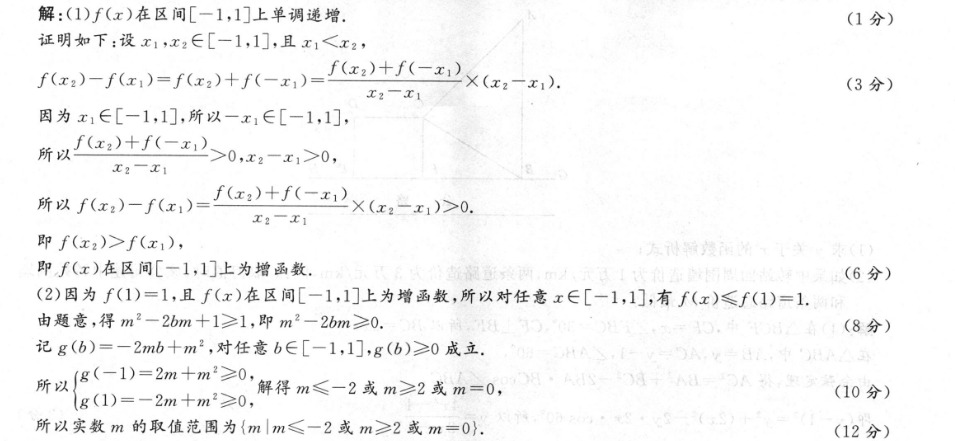 解:(1)f(x)在区间[-1,1]上单调递增. (1分)
证明如下:设 x₁,x₂∈[-1,1],且 x₁<x₂,
f(x₂)-f(x₁)=f(x₂)+f(-x₁)=\frac{f(x₂)+f(-x₁)}{x₂-x₁}×(x₂-x₁). (3分)
因为 x₁∈[-1,1],所以-x₁∈[-1,1],
所以\frac{f(x₂)+f(-x₁)}{x₂-x₁}>0,x₂-x₁>0,
所以 f(x₂)-f(x₁)=\frac{f(x₂)+f(-x₁)}{x₂-x₁}×(x₂-x₁)>0.
即 f(x₂)>f(x₁),
即 f(x)在区间[-1,1]上为增函数. (6分)
(2)因为 f(1)=1,且 f(x)在区间[-1,1]上为增函数,所以对任意 x∈[-1,1],有 f(x)≤f(1)=1.
由题意,得 m²-2bm+1≥1,即 m²-2bm≥0. (8分)
记 g(b)=-2mb+m²,对任意 b∈[-1,1],g(b)≥0 成立.
所以{g(-1)=2m+m²≥0, g(1)=-2m+m²≥0, 解得 m≤-2 或 m≥2 或 m=0, (10分)
所以实数 m 的取值范围为{m|m≤-2 或 m≥2 或 m=0}. (12分)